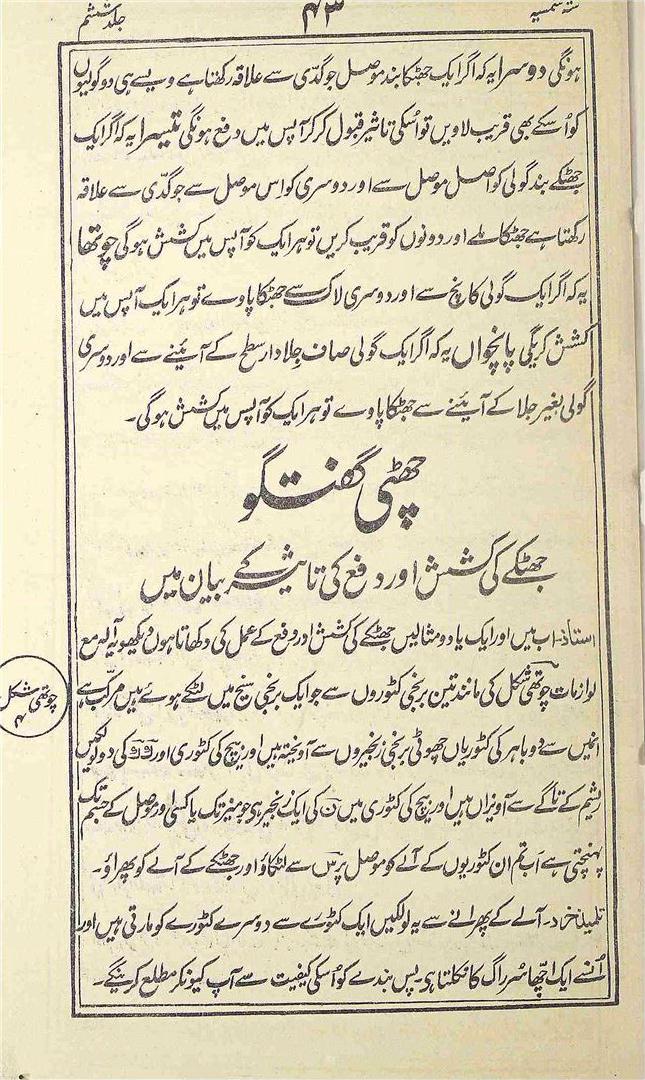 ستہ شمسیہ
۴۳
جلد ششم
ہونگی دوسرا یہ کہ اگر ایک جھٹکا بند موصل جو گدّی سے علاقہ رکھتا ہے ویسے ہی دو گولیوں
کو اُسکے بھی قریب لاویں تو اُسکی تاثیر قبول کر کر آپس میں دفع ہونگی تیسرا یہ کہ اگر ایک
جھٹکے بند گولی کو اصل موصل سے اور دوسری کو اِس موصل سے جو گدّی سے علاقہ
رکھتا ہے جھٹکا ملے اور دونوں کو قریب کریں تو ہر ایک کو آپس میں کشش ہوگی چوتھا
یہ کہ اگر ایک گولی کانچ سے اور دوسری لاک سے جھٹکا پاوے تو ہر ایک آپس میں
کشش کریگی پانچواں یہ کہ اگر ایک گولی صاف جلا دار سطح کے آئینے سے اور دوسری
گولی بغیر جلا کے آیئنے سے جھٹکا پاوے تو ہر ایک کو آپس میں کشش ہوگی۔
چھٹی گفتگو
جھٹکے کی کشش اور دفع کی تاثیر کے بیان میں
استاذ۔ اب میں اور ایک یا دو مثالیں جھٹکے کی کشش اور دفع کے عمل کی دکھاتا ہوں دیکھو یہ آلہ مع
لوازمات چوتھی شکل کی مانند تین برنجی کٹوروں سے جو ایک برنجی سیخ میں لٹکے ہوئے ہیں مرکّب ہے
چوتھی شکل
۴
انمیں سے دو باہر کی کٹوریاں چھوٹی برنجی زنجیروں سے آویختہ ہیں اور بیچ کی کٹوری اور کی دو لولکیں
ریشم کے تاگے سے آویزاں ہیں اور بیچ کی کٹوری میں ن کی ایک زنجیر ہی جو میز تک یا کسی اور موصل کے جسم تک
پہنچتی ہے اب تم ان کٹوریوں کے آلے کو موصل پر س سے لٹکاؤ اور جھٹکے کے آلے کو پھراؤ۔
تلمیذ خرد۔ آلے کے پھرانے سے یہ لولکیں ایک کٹورے سے دوسرے کٹورے کو مارتی ہیں اور
اُنسے ایک اچّھا سُر راگ کا نکلتا ہی۔ پس بندے کو اُسکی کیفیت سے آپ کیونکر مطلع کرینگے۔